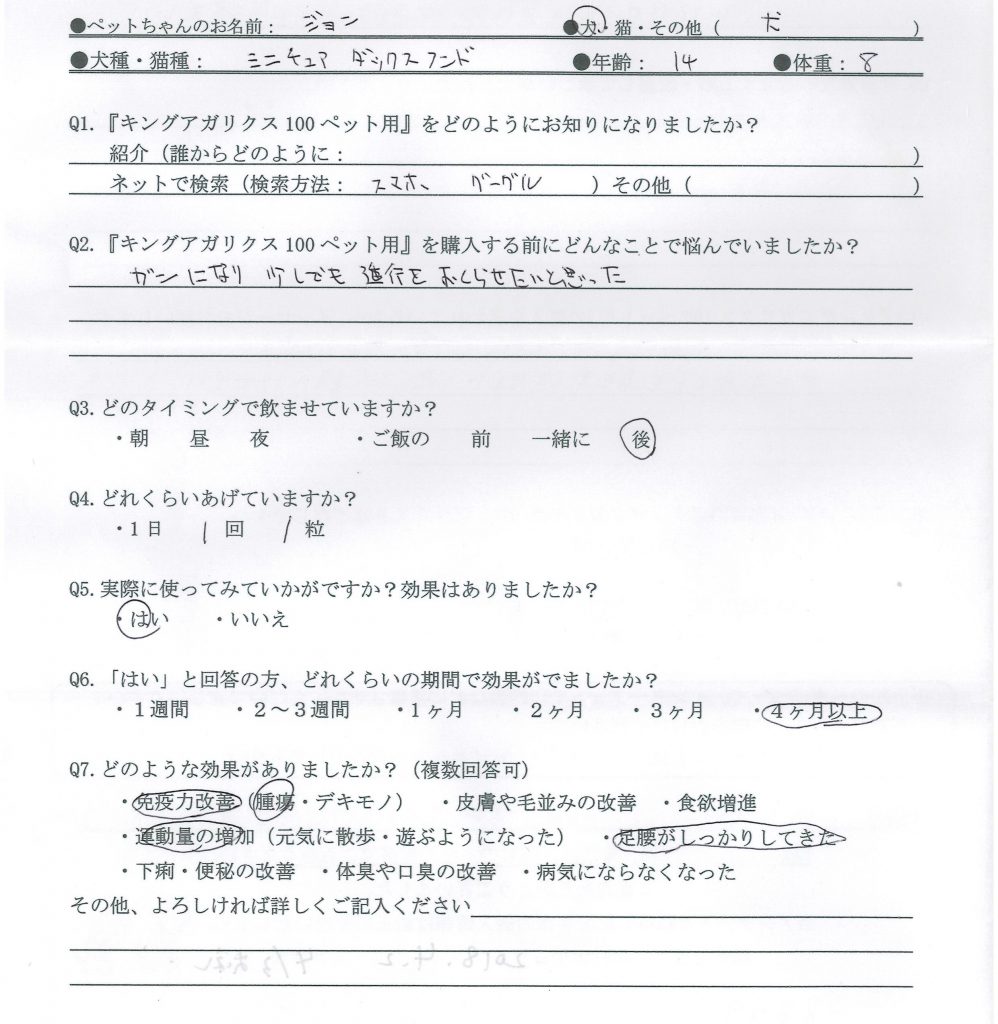 ●ペットちゃんのお名前： ジョン ●犬・猫・その他（ 犬 ）
●犬種・猫種： ミニチュア ダックスフンド ●年齢： 14 ●体重： 8
Q1.『キングアガリクス100ペット用』をどのようにお知りになりましたか？
紹介（誰からどのように： ）
ネットで検索（検索方法： スマホ、 グーグル ）その他（ ）
Q2.『キングアガリクス100ペット用』を購入する前にどんなことで悩んでいましたか？
ガンになり 少しでも 進行を おくらせたいと思った
Q3.どのタイミングで飲ませていますか？
・朝 昼 夜 ・ご飯の 前 一緒に 後
Q4.どれくらいあげていますか？
・1日 1 回 1 粒
Q5.実際に使ってみていかがですか？効果はありましたか？
・はい ・いいえ
Q6.「はい」と回答の方、どれくらいの期間で効果がでましたか？
・１週間 ・２～３週間 ・1ヶ月 ・２ヶ月 ・３ヶ月 ・４ヶ月以上
Q7.どのような効果がありましたか？（複数回答可）
・免疫力改善（腫瘍・デキモノ） ・皮膚や毛並みの改善 ・食欲増進
・運動量の増加（元気に散歩・遊ぶようになった） ・足腰がしっかりしてきた
・下痢・便秘の改善 ・体臭や口臭の改善 ・病気にならなくなった
その他、よろしければ詳しくご記入ください
2018.4.2